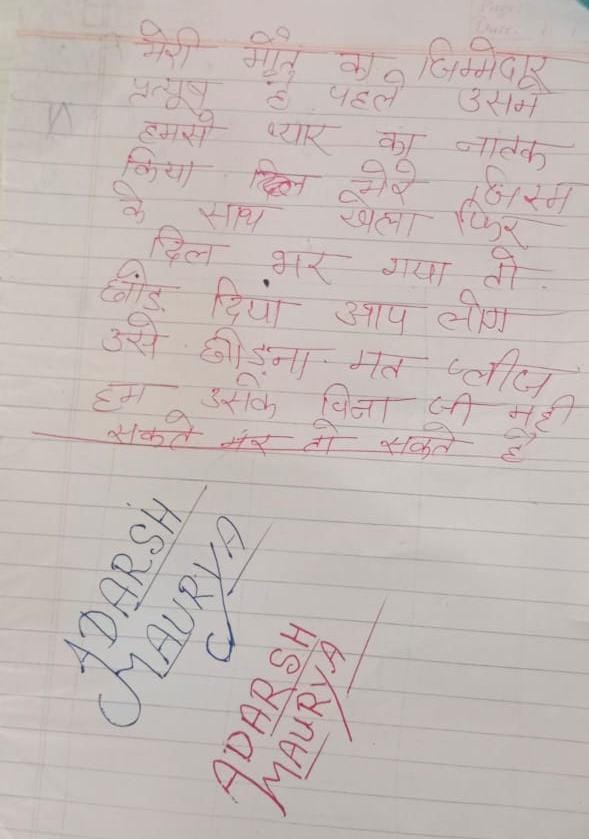 मेरी मौत का जिम्मेदार
प्रत्यूष है पहले उसने
हमसे प्यार का नाटक
किया मेरे जिस्म
के साथ खेला फिर
दिल भर गया तो
छोड़ दिया आप लोग
उसे छोड़ना मत प्लीज
हम उसके बिना जी नही
सकते मर तो सकते है
ADARSH
MAURYA
ADARSH
MAURYA